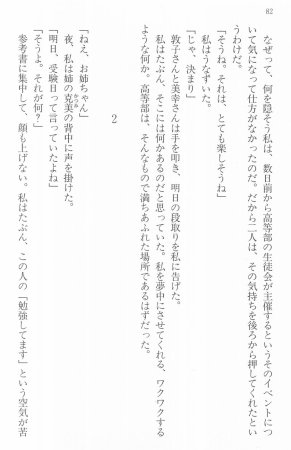 82
なぜって、何を隠そう私は、数日前から高等部の生徒会が主催するというそのイベントにつ
いて気になって仕方がなかったのだ。だから二人は、その気持ちを後ろから押してくれたとい
うわけだ。
「そうね。それは、とても楽しそうね」
私はうなずいた。
「じゃ、決まり」
敦子さんと美幸さんは手を叩き、明日の段取りを私に告げた。
私はたぶん、そこには何かあるのだと思っていた。私を夢中にさせてくれる、ワクワクする
ような何か。高等部は、そんなもので満ちあふれた場所であるはずだった。
2
「ねえ、お姉ちゃん」
夜、私は姉の克美の背中に声を掛けた。
「明日、受験日って言っていたよね」
「そうよ。それが何？」
参考書に集中して、顔も上げない。私はたぶん、この人の「勉強してます」という空気が苦